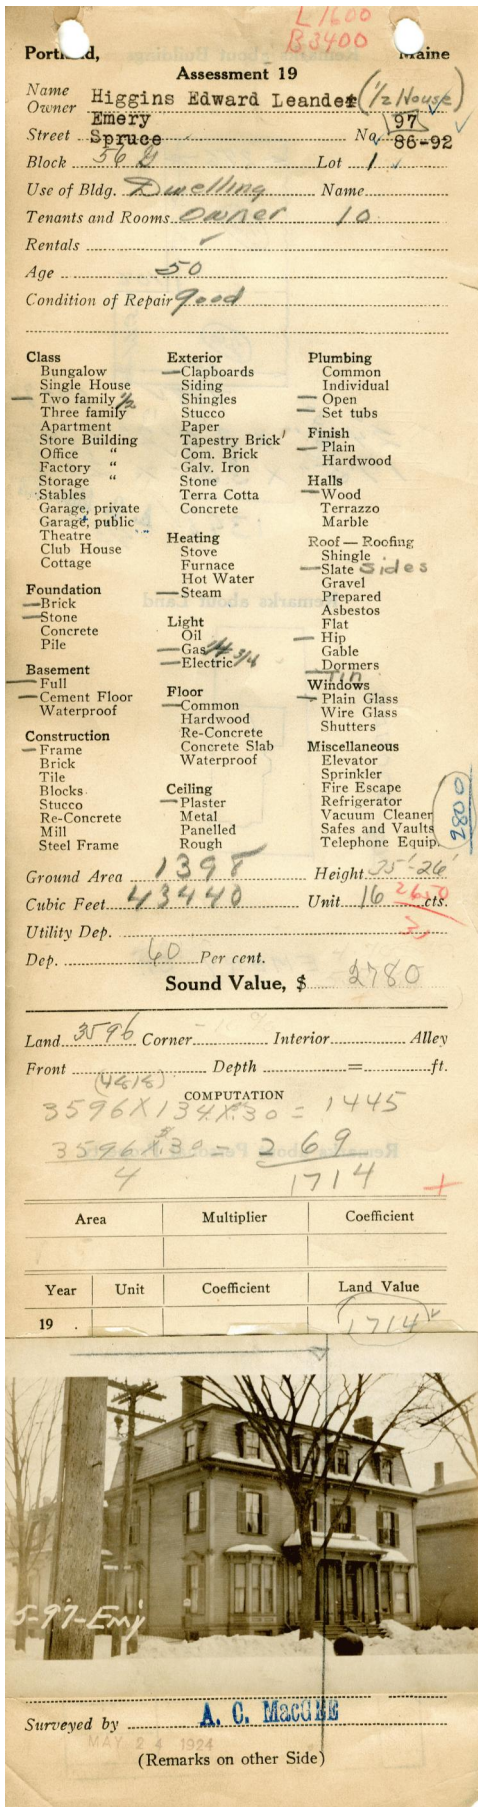 L 1600
B 3400
Portland, Maine
Assessment 19
Name
Owner Higgins Edward Leander (1/2 House)
Emery 97
Street Spruce No. 86-92
Block 56 G Lot 1
Use of Bldg. Dwelling Name
Tenants and Rooms owner 10
Rentals
Age 50
Condition of Repair good
Class
Bungalow
Single House
Two family 1/2
Three family
Apartment
Store Building
Office "
Factory "
Storage "
Stables
Garage, private
Garage, public
Theatre
Club House
Cottage
Foundation
Brick
Stone
Concrete
Pile
Basement
Full
Cement Floor
Waterproof
Construction
Frame
Brick
Tile
Blocks
Stucco
Re-Concrete
Mill
Steel Frame
Exterior
Clapboards
Siding
Shingles
Stucco
Paper
Tapestry Brick
Com. Brick
Galv. Iron
Stone
Terra Cotta
Concrete
Heating
Stove
Furnace
Hot Water
Steam
Light
Oil
Gas 1/4
Electric 3/4
Floor
Common
Hardwood
Re-Concrete
Concrete Slab
Waterproof
Ceiling
Plaster
Metal
Panelled
Rough
Plumbing
Common
Individual
Open
Set tubs
Finish
Plain
Hardwood
Halls
Wood
Terrazzo
Marble
Roof — Roofing
Shingle
Slate Sides
Gravel
Prepared
Asbestos
Flat
Hip
Gable
Dormers
Tin
Windows
Plain Glass
Wire Glass
Shutters
Miscellaneous
Elevator
Sprinkler
Fire Escape
Refrigerator
Vacuum Cleaner
Safes and Vaults
Telephone Equip.
2800
Ground Area 1398 Height 35'-26'
Cubic Feet 43440 Unit 16 cts.
2650
Utility Dep.
Dep. 60 Per cent.
Sound Value, $ 2780
Land 3596 Corner Interior Alley
Front Depth = ft.
COMPUTATION
3596 X 134 X .30 = 1445
269
4 1714
Area Multiplier Coefficient
Year Unit Coefficient Land Value
19 1714
5-97-Emy
Surveyed by A. C. MacGEE
MAY 24 1924
(Remarks on other Side)